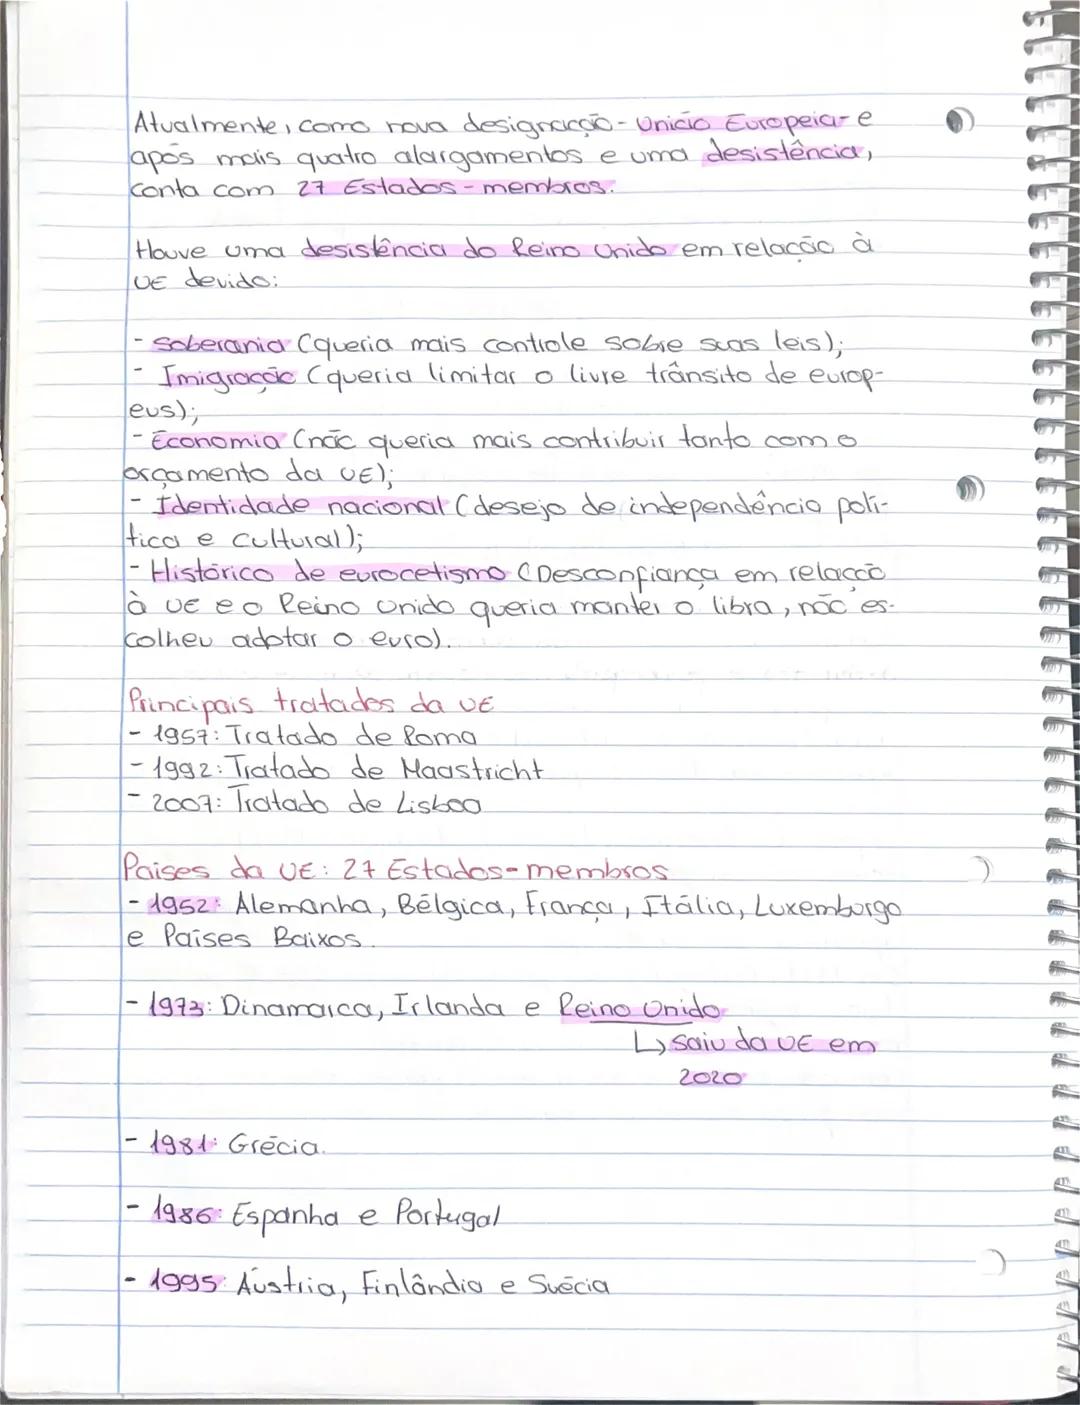 Atualmente, como nova designação - União Europeia - e
após mais quatro alargamentos e uma desistência,
conta com 27 Estados-membros.
Houve uma desistência do Reino Unido em relação à
UE devido:
- Soberania (queria mais controle sobre suas leis);
- Imigração (queria limitar o livre trânsito de europ-
eus);
- Economia (não queria mais contribuir tanto com o
orçamento da UE);
- Identidade nacional (desejo de independência polí-
tica e cultural);
- Histórico de eurocetismo (Desconfiança em relação
à UE e o Reino Unido queria manter o libra, não es-
colheu adotar o euro).
Principais tratados da UE
- 1957: Tratado de Roma
- 1992: Tratado de Maastricht
- 2007: Tratado de Lisboa
Países da UE: 27 Estados-membros
- 1952: Alemanha, Bélgica, França, Itália, Luxemburgo
e Países Baixos.
- 1973: Dinamarca, Irlanda e Reino Unido
↳ saiu da UE em
2020
- 1981: Grécia.
- 1986: Espanha e Portugal
- 1995: Áustria, Finlândia e Suécia